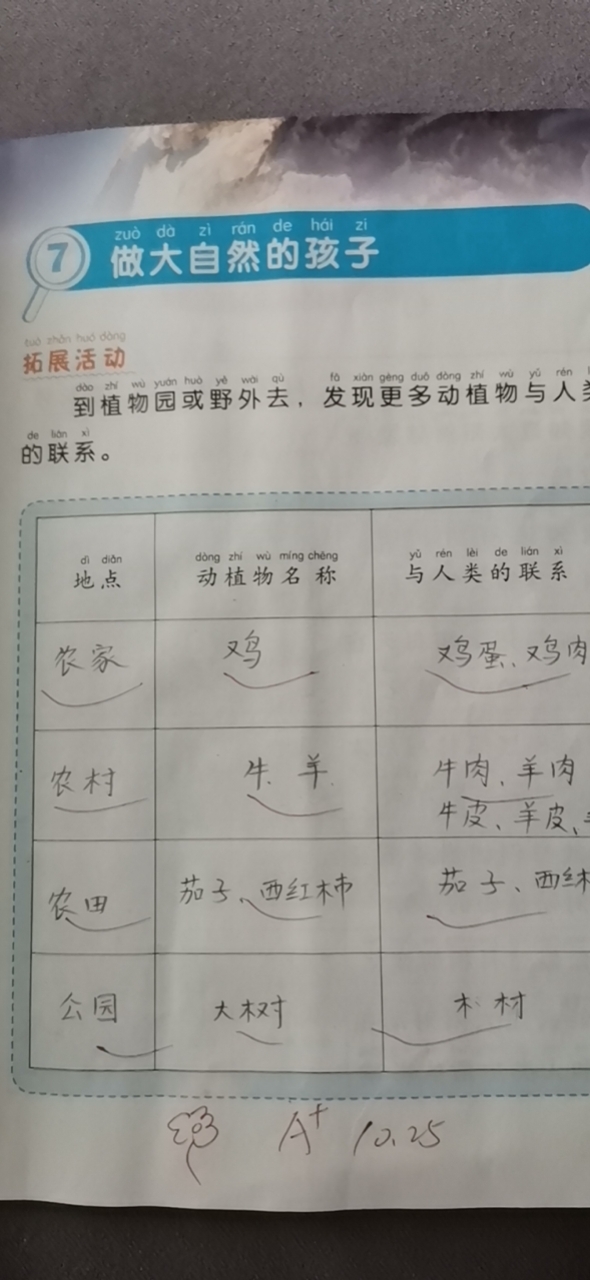 7
zuò dà zì rán de hái zi
做大自然的孩子
tuò zhǎn huó dòng
拓展活动
dào zhí wù yuán huò yě wài qù fā xiàn gèng duō dòng zhí wù yǔ rén
到植物园或野外去，发现更多动植物与人类
de lián xì
的联系。
dì diǎn dòng zhí wù míng chēng yǔ rén lèi de lián xì
地点 动植物名称 与人类的联系
农家 鸡 鸡蛋、鸡肉
农村 牛、羊 牛肉、羊肉
牛皮、羊皮、
农田 茄子、西红柿 茄子、西红
公园 大树 木材
A+ 10.25